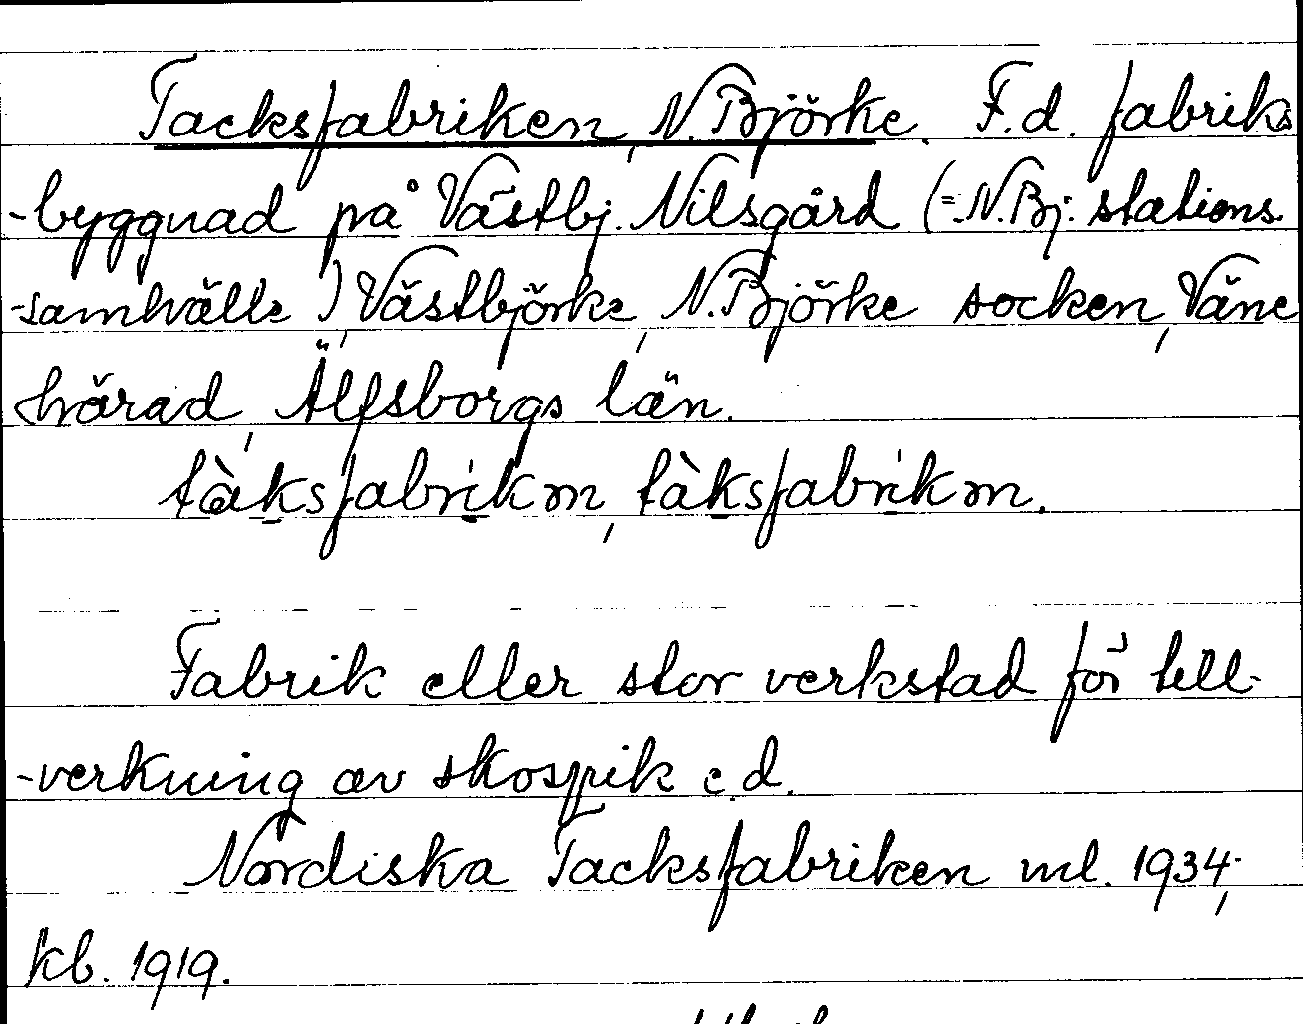 Tacksfabriken, N. Björke. F.d. fabriks
-byggnad på Västbj. Nilsgård (=N.Bj. stations-
-samhälle), Västbjörke, N. Björke socken, Väne
härad, Älfsborgs län.
tàksfabrikm, tàksfabrikm.
Fabrik eller stor verkstad för till-
-verkning av skospik e.d.
Nordiska Tacksfabriken ml. 1934;
kb. 1919.